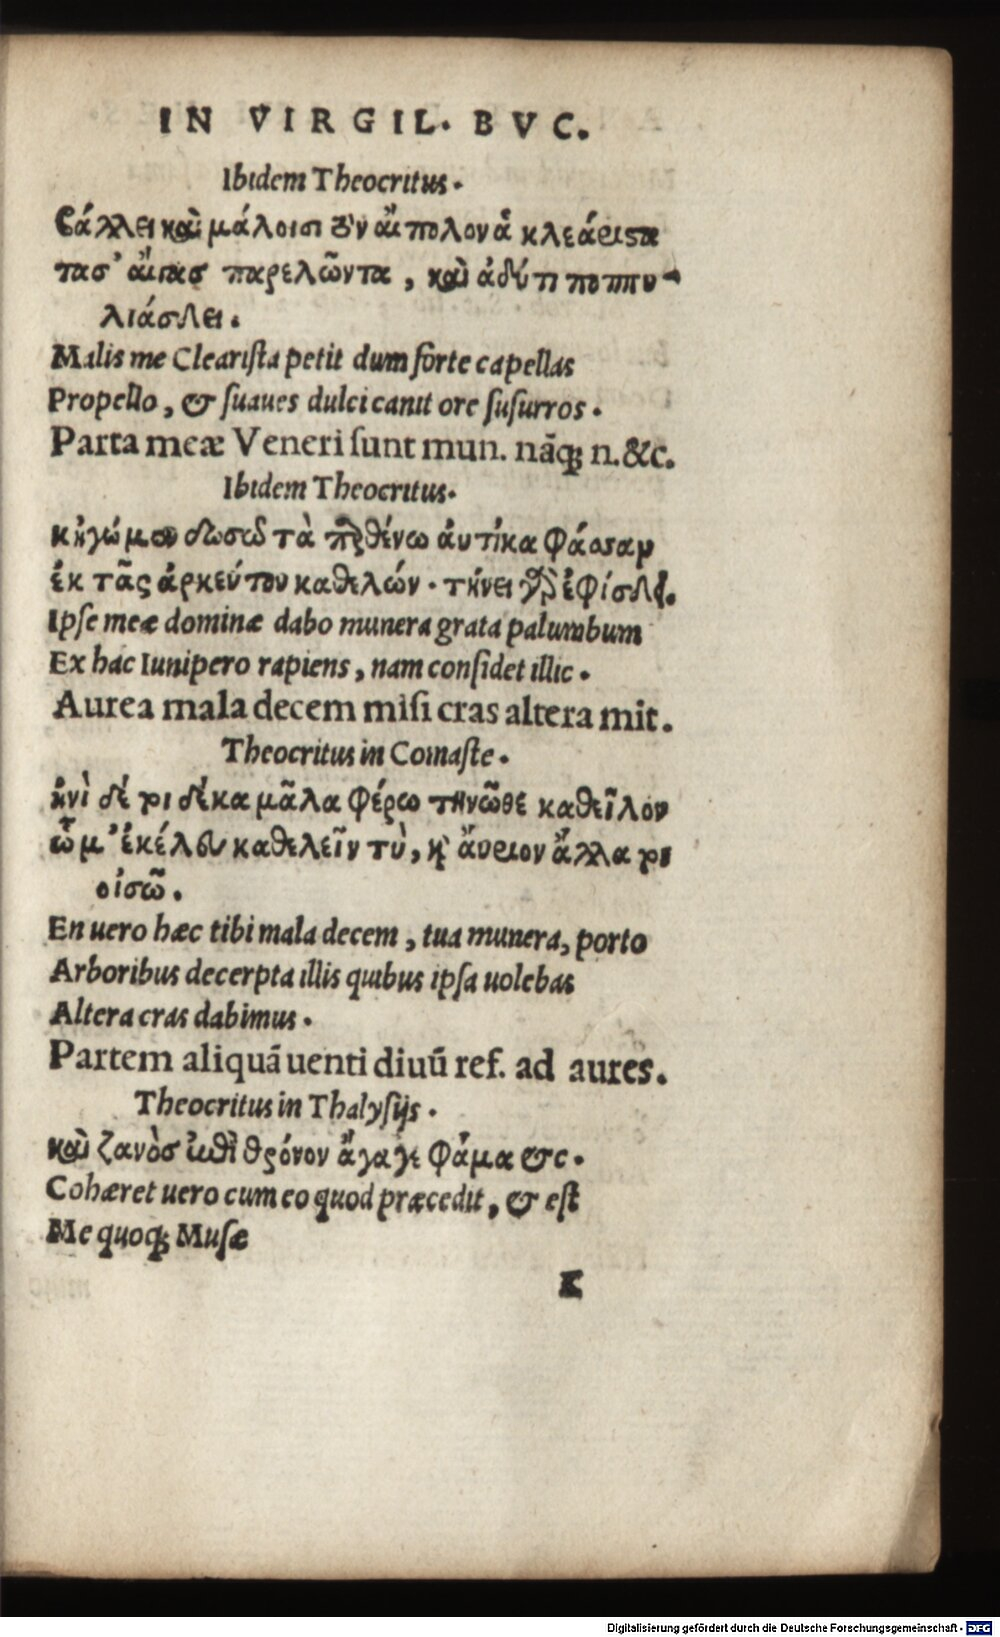 IN VIRGIL. BVC.
Ibidem Theocritus.
βάλλει καὶ μάλοισι τὸν αἰπόλον ἁ κλεάριστα
τασ' αἶγασ παρελῶντα, καὶ ἁδύ τι ποππυ-
λιάσδει.
Malis me Clearista petit dum forte capellas
Propello, & suaues dulci canit ore susurros.
Parta meæ Veneri sunt mun. nãq; n. &c.
Ibidem Theocritus.
κἠγώ μεν δωσῶ τᾷ παρθένῳ αὐτίκα φάσσαν
ἐκ τᾶς ἀρκεύτου καθελών. τηνεὶ γὰρ ἐφίσδει.
Ipse meæ dominæ dabo munera grata palumbum
Ex hac Iunipero rapiens, nam considet illic.
Aurea mala decem misi cras altera mit.
Theocritus in Comaste.
ἠνὶ δέ τοι δέκα μᾶλα φέρω τηνῶθε καθεῖλον
ὧ μ' ἐκέλευ καθελεῖν τὺ, κỳ ἄυριον ἄλλα τοι
οἰσῶ.
En uero hæc tibi mala decem, tua munera, porto
Arboribus decerpta illis quibus ipsa uolebas
Altera cras dabimus.
Partem aliquã uenti diuũ ref. ad aures.
Theocritus in Thalysijs.
καὶ ζανὸσ ἐπὶ θρόνον ἄγαγε φάμα &c.
Cohæret uero cum eo quod præcedit, & est
Me quoq; Musæ
K
Digitalisierung gefördert durch die Deutsche Forschungsgemeinschaft - DFG